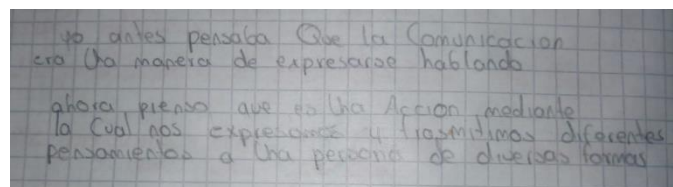 yo antes pensaba Que la Comunicacion
era Una manera de expresarse hablando
ahora pienso que es Una Accion mediante
la Cual nos expresamos y trasmitimos diferentes
pensamientos a Una persona de diversas formas